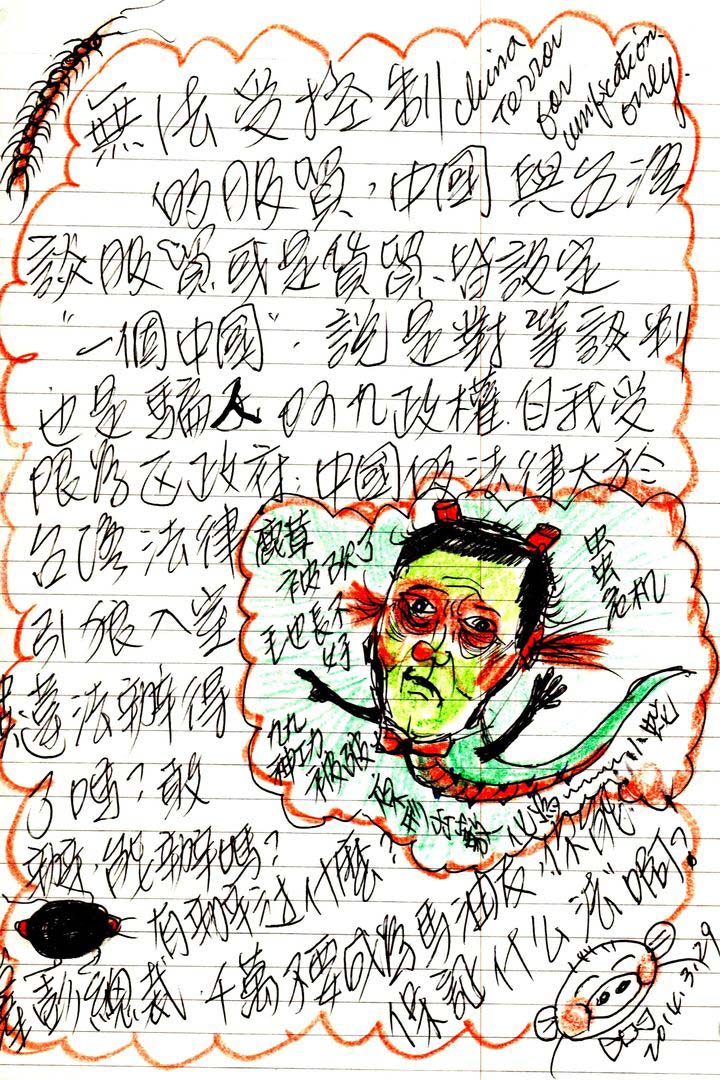 無法受控制
China
Terror
for
unification
only.
的服貿,中國與台灣
談服貿或是貨貿、皆設定
"一個中國",說是對等談判
也是騙人 九政權自我受
限為區政府,中國的法律大於
台灣法律
引狼入室
法辦得
了嗎?敢
辦,能辦嗎?
有辦过什麼?
副總裁,千萬不要成為馬油反
保記什么法啊?
鹿茸
被砍了
毛也長不
好
危机
九九
神功
被破
2014.3.29